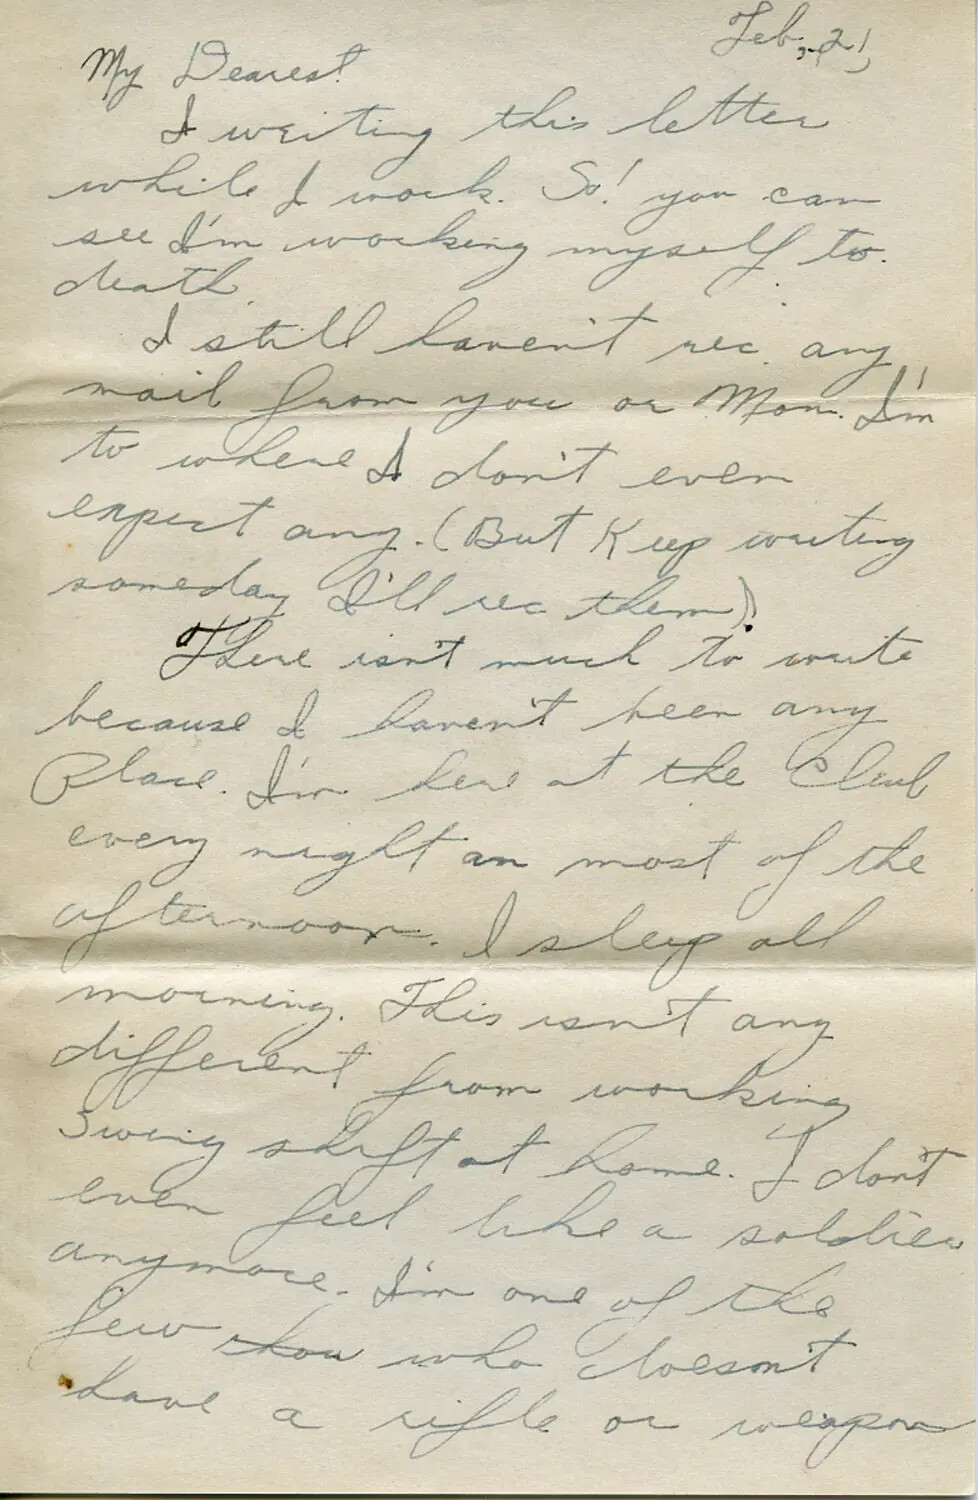 Feb, 21,
My Dearest
I writing this letter
while I work. So! you can
see I'm working myself to
death.
I still haven't rec. any
mail from you or Mom. I'm
to where I don't even
expect any. (But Keep writing
someday I'll rec them).
There isn't much to write
because I haven't been any
Place. I'm here at the Club
every night an most of the
afternoon. I sleep all
morning. This isn't any
different from working
Swing shift at home. I don't
even feel like a soldier
anymore. I'm one of the
few who doesn't
have a rifle or weapon